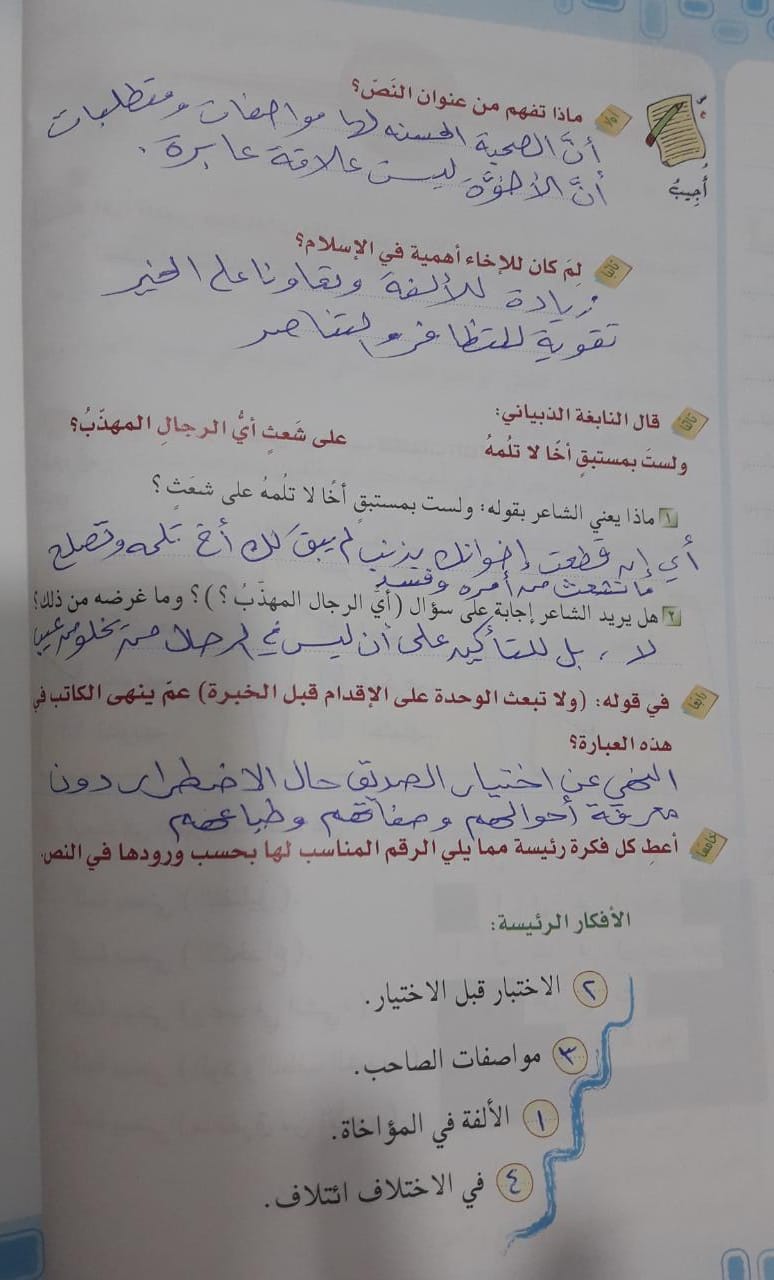 أُجِيبُ
أولًا ماذا تفهم من عنوان النَصّ؟
أنَّ الصحبة الحسنه لها مواصفات ومتطلبات
أنَّ الأخوَّة ليست علاقة عابرة.
ثانيًا لِمَ كان للإخاء أهمية في الإسلام؟
زيادة للألفة وتعاونا على الخير
تقوية للتظافر والتناصر
ثالثًا قال النابغة الذبياني:
ولستَ بمستبقٍ أخًا لا تلُمهُ على شَعثٍ أيُّ الرجالِ المهذّبُ؟
١ ماذا يعني الشاعر بقوله: ولست بمستبقٍ أخًا لا تلُمهُ على شعَثٍ؟
أي إن قطعت إخوانك بذنب لم يبق لك أخ تلمه وتصلح
ما تشعث من أمره وفسد
٢ هل يريد الشاعر إجابة على سؤال (أيُّ الرجال المهذّبُ؟)؟ وما غرضه من ذلك؟
لا، بل للتأكيد على أن ليس في الرجال من يخلو من عيب
رابعًا في قوله: (ولا تبعث الوحدة على الإقدام قبل الخبرة) عمّ ينهى الكاتب في
هذه العبارة؟
النهي عن اختيار الصديق حال الاضطرار دون
معرفة أحوالهم وصفاتهم وطباعهم
خامسًا أعطِ كل فكرة رئيسة مما يلي الرقم المناسب لها بحسب ورودها في النص.
الأفكار الرئيسة:
٢ الاختبار قبل الاختيار.
٣ مواصفات الصاحب.
١ الألفة في المؤاخاة.
٤ في الاختلاف ائتلاف.